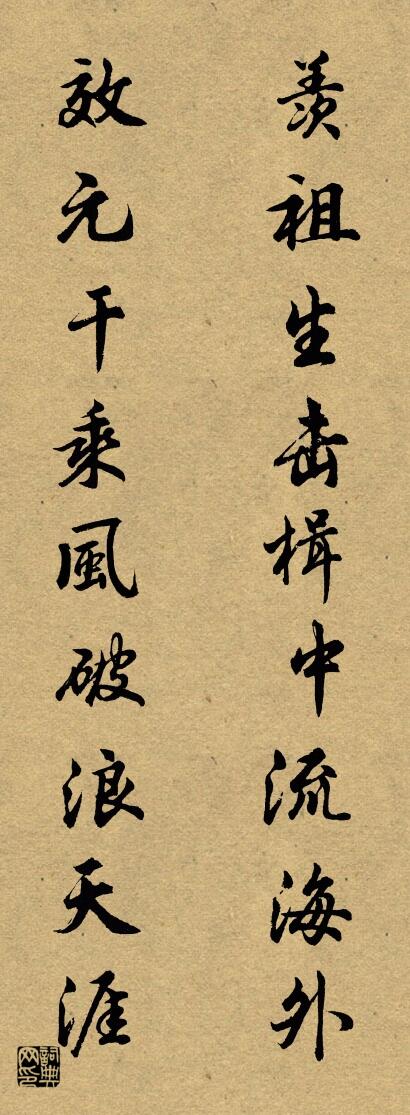 羡祖生击楫中流海外
效元干乘風破浪天涯